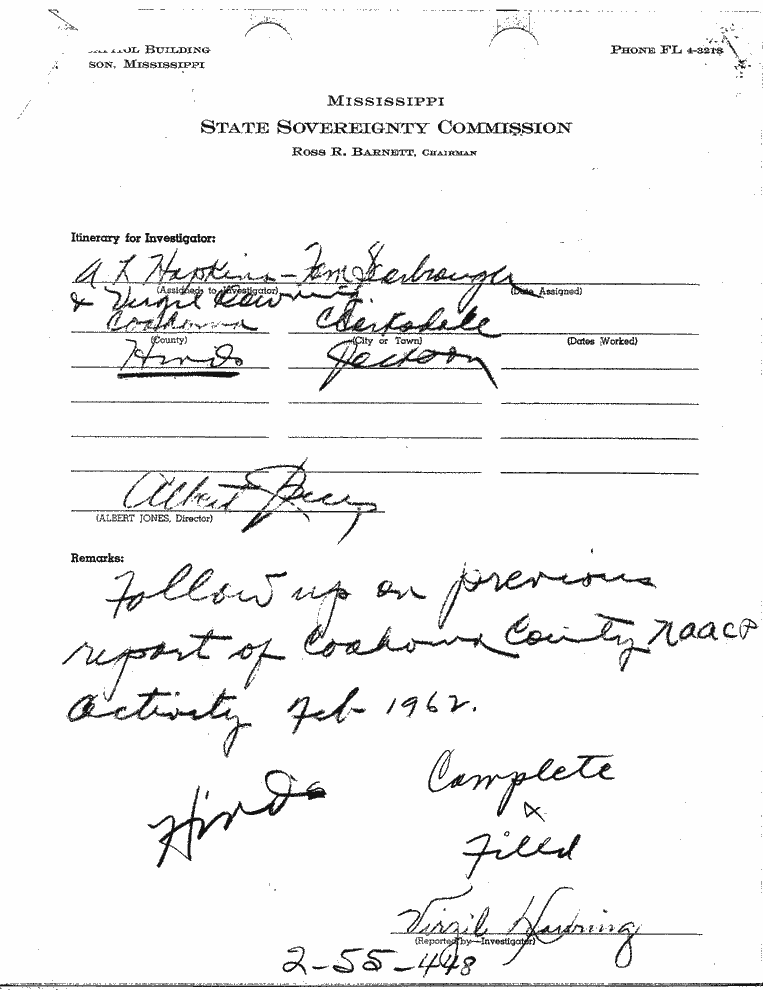 BUILDING
SON, MISSISSIPPI
PHONE FL 4-3218
MISSISSIPPI
STATE SOVEREIGNTY COMMISSION
ROSS R. BARNETT, CHAIRMAN
Itinerary for Investigator:
A L Hopkins - Tom Scarbrough
(Assigned to Investigator) (Date Assigned)
& Virgil Downing
Coahoma Clarksdale
(County) (City or Town) (Dates Worked)
Hinds Jackson
Albert Jones
(ALBERT JONES, Director)
Remarks:
Follow up on previous
report of Coahoma County NAACP
activity Feb 1962.
Hinds
Complete
&
Filled
Virgil Downing
(Reported by—Investigator)
2-55-448